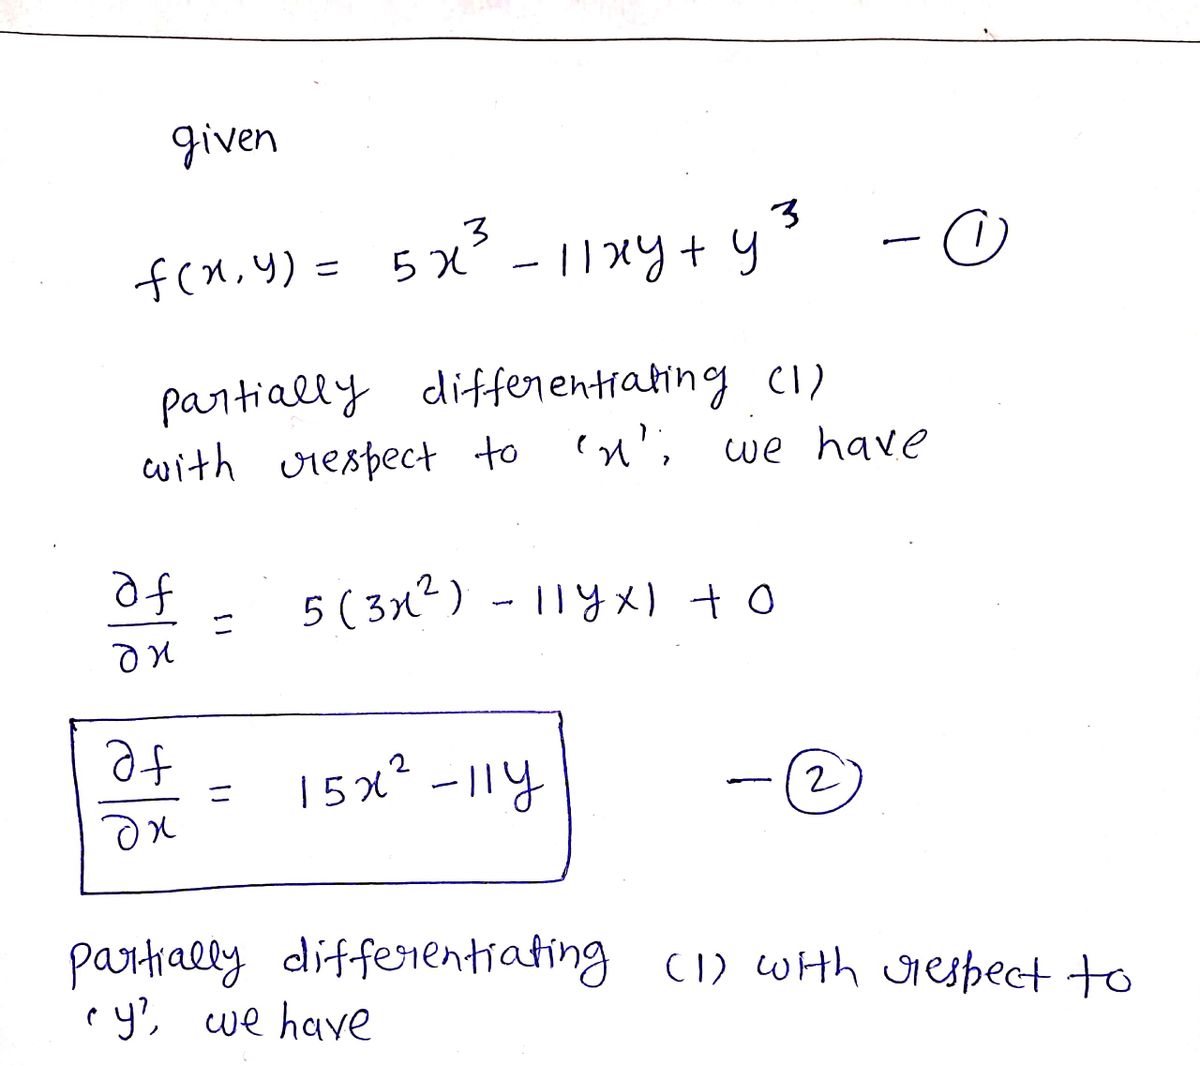 given
f(x,y) = 5x³ - 11xy + y³ - ①
partially differentiating (1)
with respect to 'x', we have
∂f/∂x = 5(3x²) - 11y×1 + 0
∂f/∂x = 15x² - 11y - ②
partially differentiating (1) with respect to
'y', we have